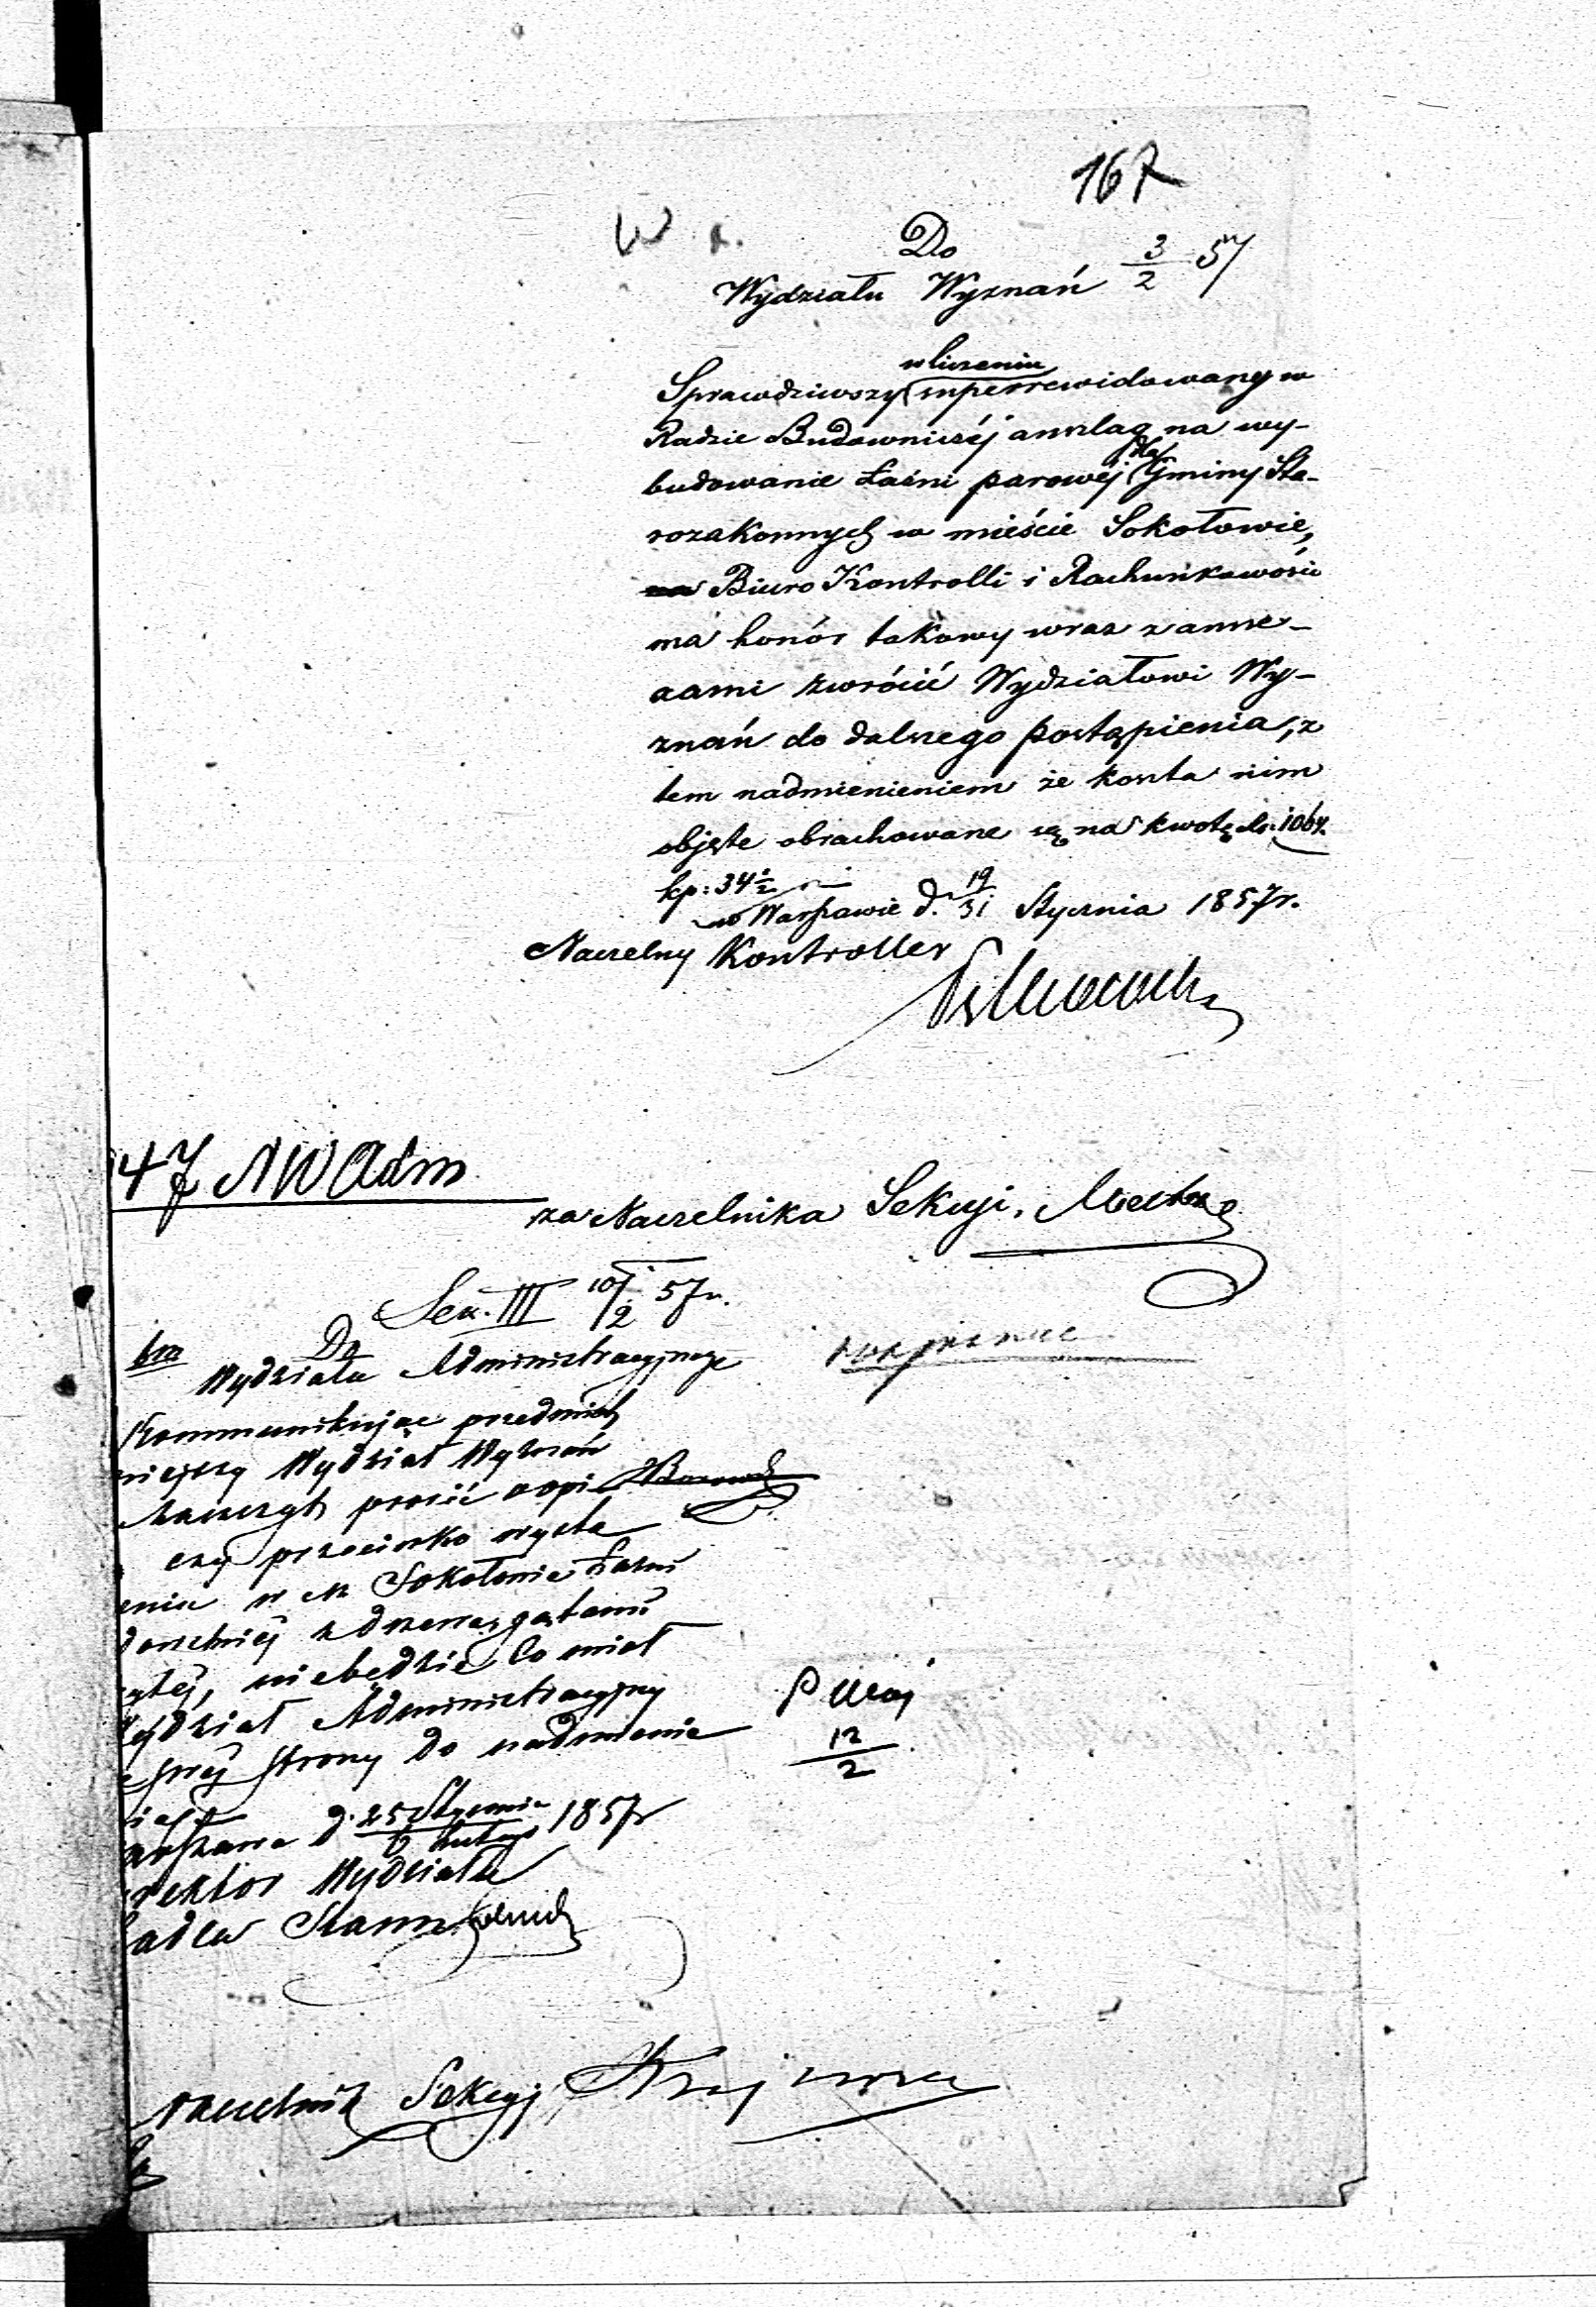 167
Do
Wydziału Wyznań 3/2 57
w liczeniu
Sprawdziwszy superrewidowany w
Radzie Budowniczéj anszlag na wy-
budowanie Łaźni parowéj dla Gminy Sta-
rozakonnych w mieście Sokołowie,
Biuro Kontrolli i Rachunkowości
ma honór takowy wraz z anne-
xami zwrócić Wydziałowi Wy-
znań do dalszego postąpienia, z
tem nadmienieniem że koszta nim
objęte obrachowane są na kwotę rs: 1064.
kp: 34½
w Warszawie d. 19/31 Stycznia 1857 r.
Naczelny Kontroller
47 N W Adm
za Naczelnika Sekcyi.
Sek. III 10/2 57 r.
Do
Wydziału Administracyjnego
Kommunikując przedmiot
niejszy Wydział Wyznań
zaszczyt prosić o opi
czy przeciwko wysta
eniu w m Sokołowie Łaźni
z drzewa, gątami
ytéj, niebędzie co miał
ydział Administracyjny
e swéj strony do nadmienie
nia
arszawa d. 25 Stycznia/6 Lutego 1857 r
yrektor Wydziału
adca Stanu
12/2
Naczelnik Sekcyi